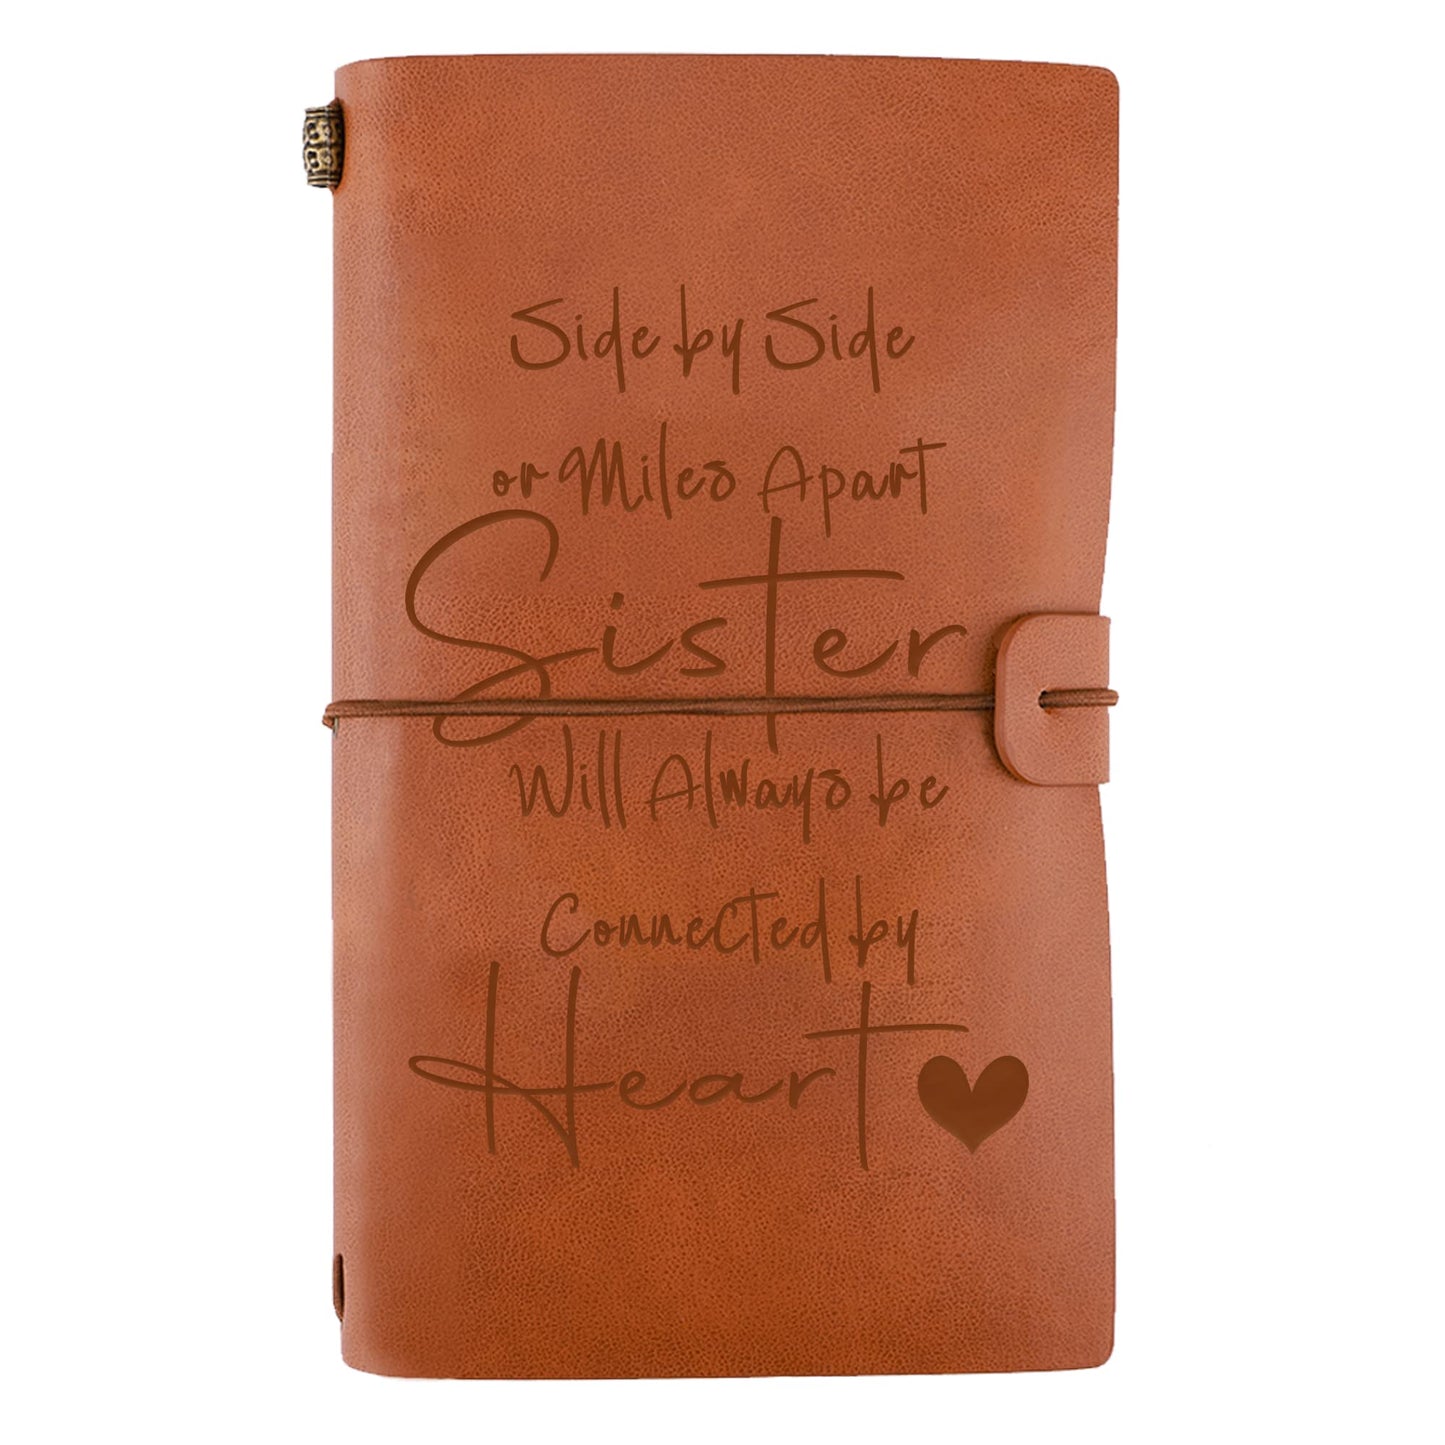 Side by Side
or Miles Apart
Sister
Will Always be
Connected by
Heart